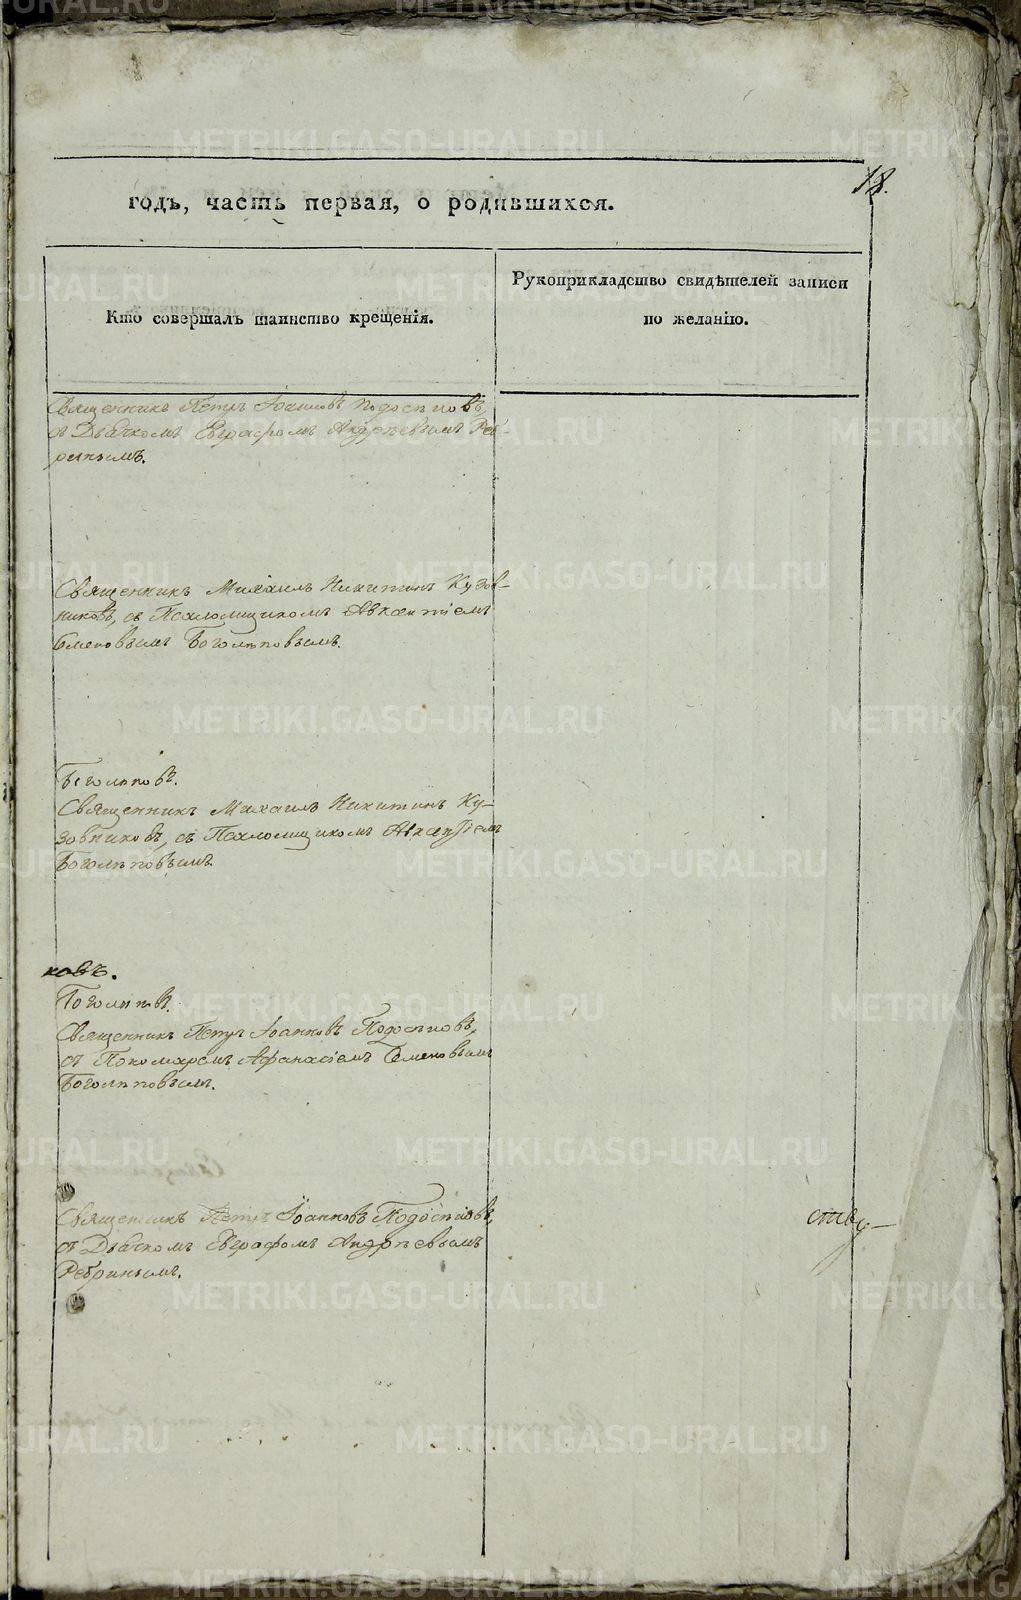 18.
годъ, часть первая, о родившихся.
Кто совершалъ таинство крещенія.
Рукоприкладство свидѣтелей записи
по желанію.
Священникъ Петръ Іоанновъ Подосѣновъ,
съ Дьячкомъ Евграфомъ Андрѣевымъ Реб-
ринымъ.
Священникъ Михаилъ Никитинъ Кузов-
никовъ, съ Пономщикомъ Авксентіемъ
Семеновымъ Боголѣповымъ.
Боголѣповъ.
Священникъ Михаилъ Никитинъ Ку-
зовниковъ, съ Авксентіемъ
Боголѣповымъ.
ковъ.
Боголѣповъ.
Священникъ Петръ Іоанновъ Подосѣновъ,
съ Пономаремъ Афанасіемъ Семеновымъ
Боголѣповымъ.
Священникъ Петръ Іоанновъ Подосѣновъ,
съ Дьячкомъ Евграфомъ Андрѣевымъ
Ребринымъ.
ству
METRIKI.GASO-URAL.RU